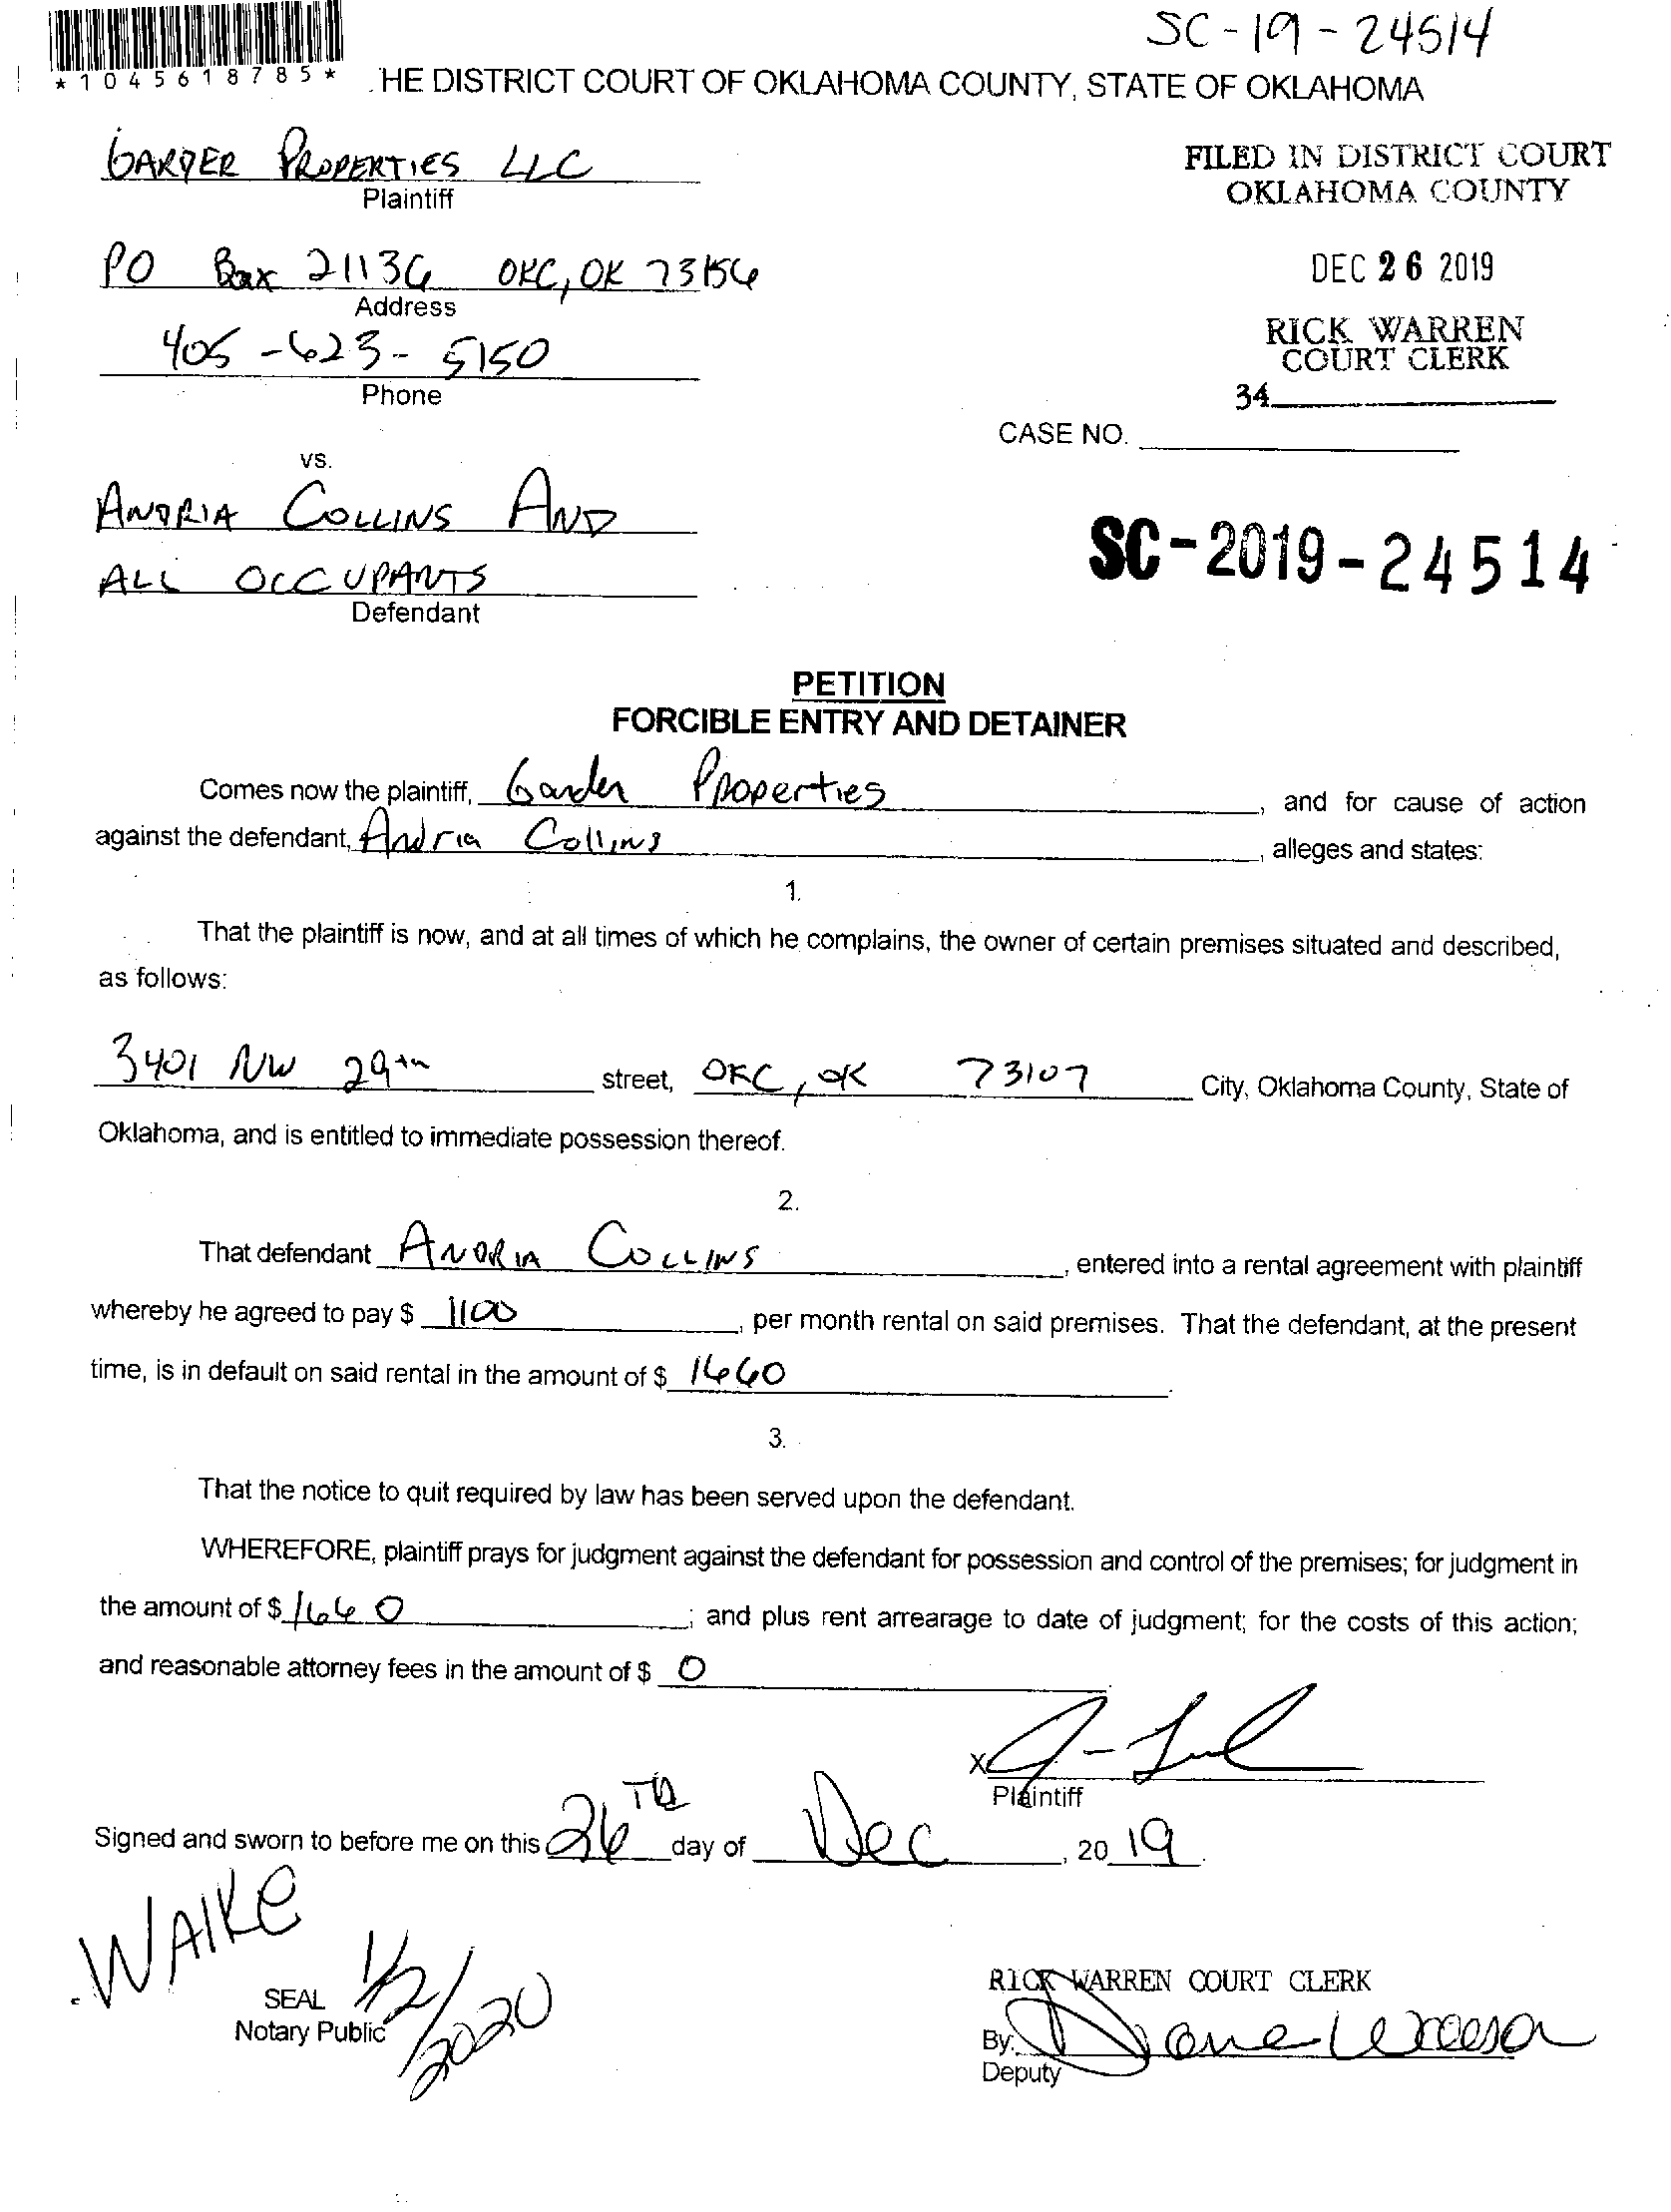 SC-19-24514
*1045618785*
HE DISTRICT COURT OF OKLAHOMA COUNTY, STATE OF OKLAHOMA
GARDER PROPERTIES LLC
Plaintiff
FILED IN DISTRICT COURT
OKLAHOMA COUNTY
PO Box 21136 OKC, OK 73156
Address
DEC 26 2019
405-623-5150
Phone
RICK WARREN
COURT CLERK
34
CASE NO.
vs.
ANDRIA COLLINS AND
ALL OCCUPANTS
Defendant
SC-2019-24514
PETITION
FORCIBLE ENTRY AND DETAINER
Comes now the plaintiff, Garder Properties, and for cause of action
against the defendant, Andria Collins, alleges and states:
1.
That the plaintiff is now, and at all times of which he complains, the owner of certain premises situated and described,
as follows:
3401 NW 29th street, OKC, OK 73107 City, Oklahoma County, State of
Oklahoma, and is entitled to immediate possession thereof.
2.
That defendant ANDRIA COLLINS, entered into a rental agreement with plaintiff
whereby he agreed to pay $ 1100, per month rental on said premises. That the defendant, at the present
time, is in default on said rental in the amount of $ 1660.
3.
That the notice to quit required by law has been served upon the defendant.
WHEREFORE, plaintiff prays for judgment against the defendant for possession and control of the premises; for judgment in
the amount of $ 1660; and plus rent arrearage to date of judgment; for the costs of this action;
and reasonable attorney fees in the amount of $ 0
X
Plaintiff
Signed and sworn to before me on this 26TH day of Dec, 2019.
WAIKE
1/2/2020
SEAL
Notary Public
RICK WARREN COURT CLERK
By:
Deputy